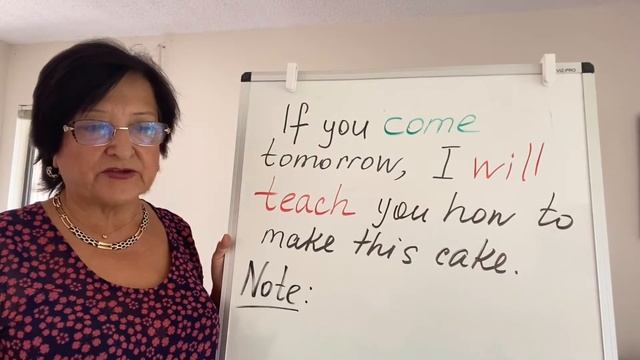 If you come
tomorrow, I will
teach you how to
make this cake.
Note: